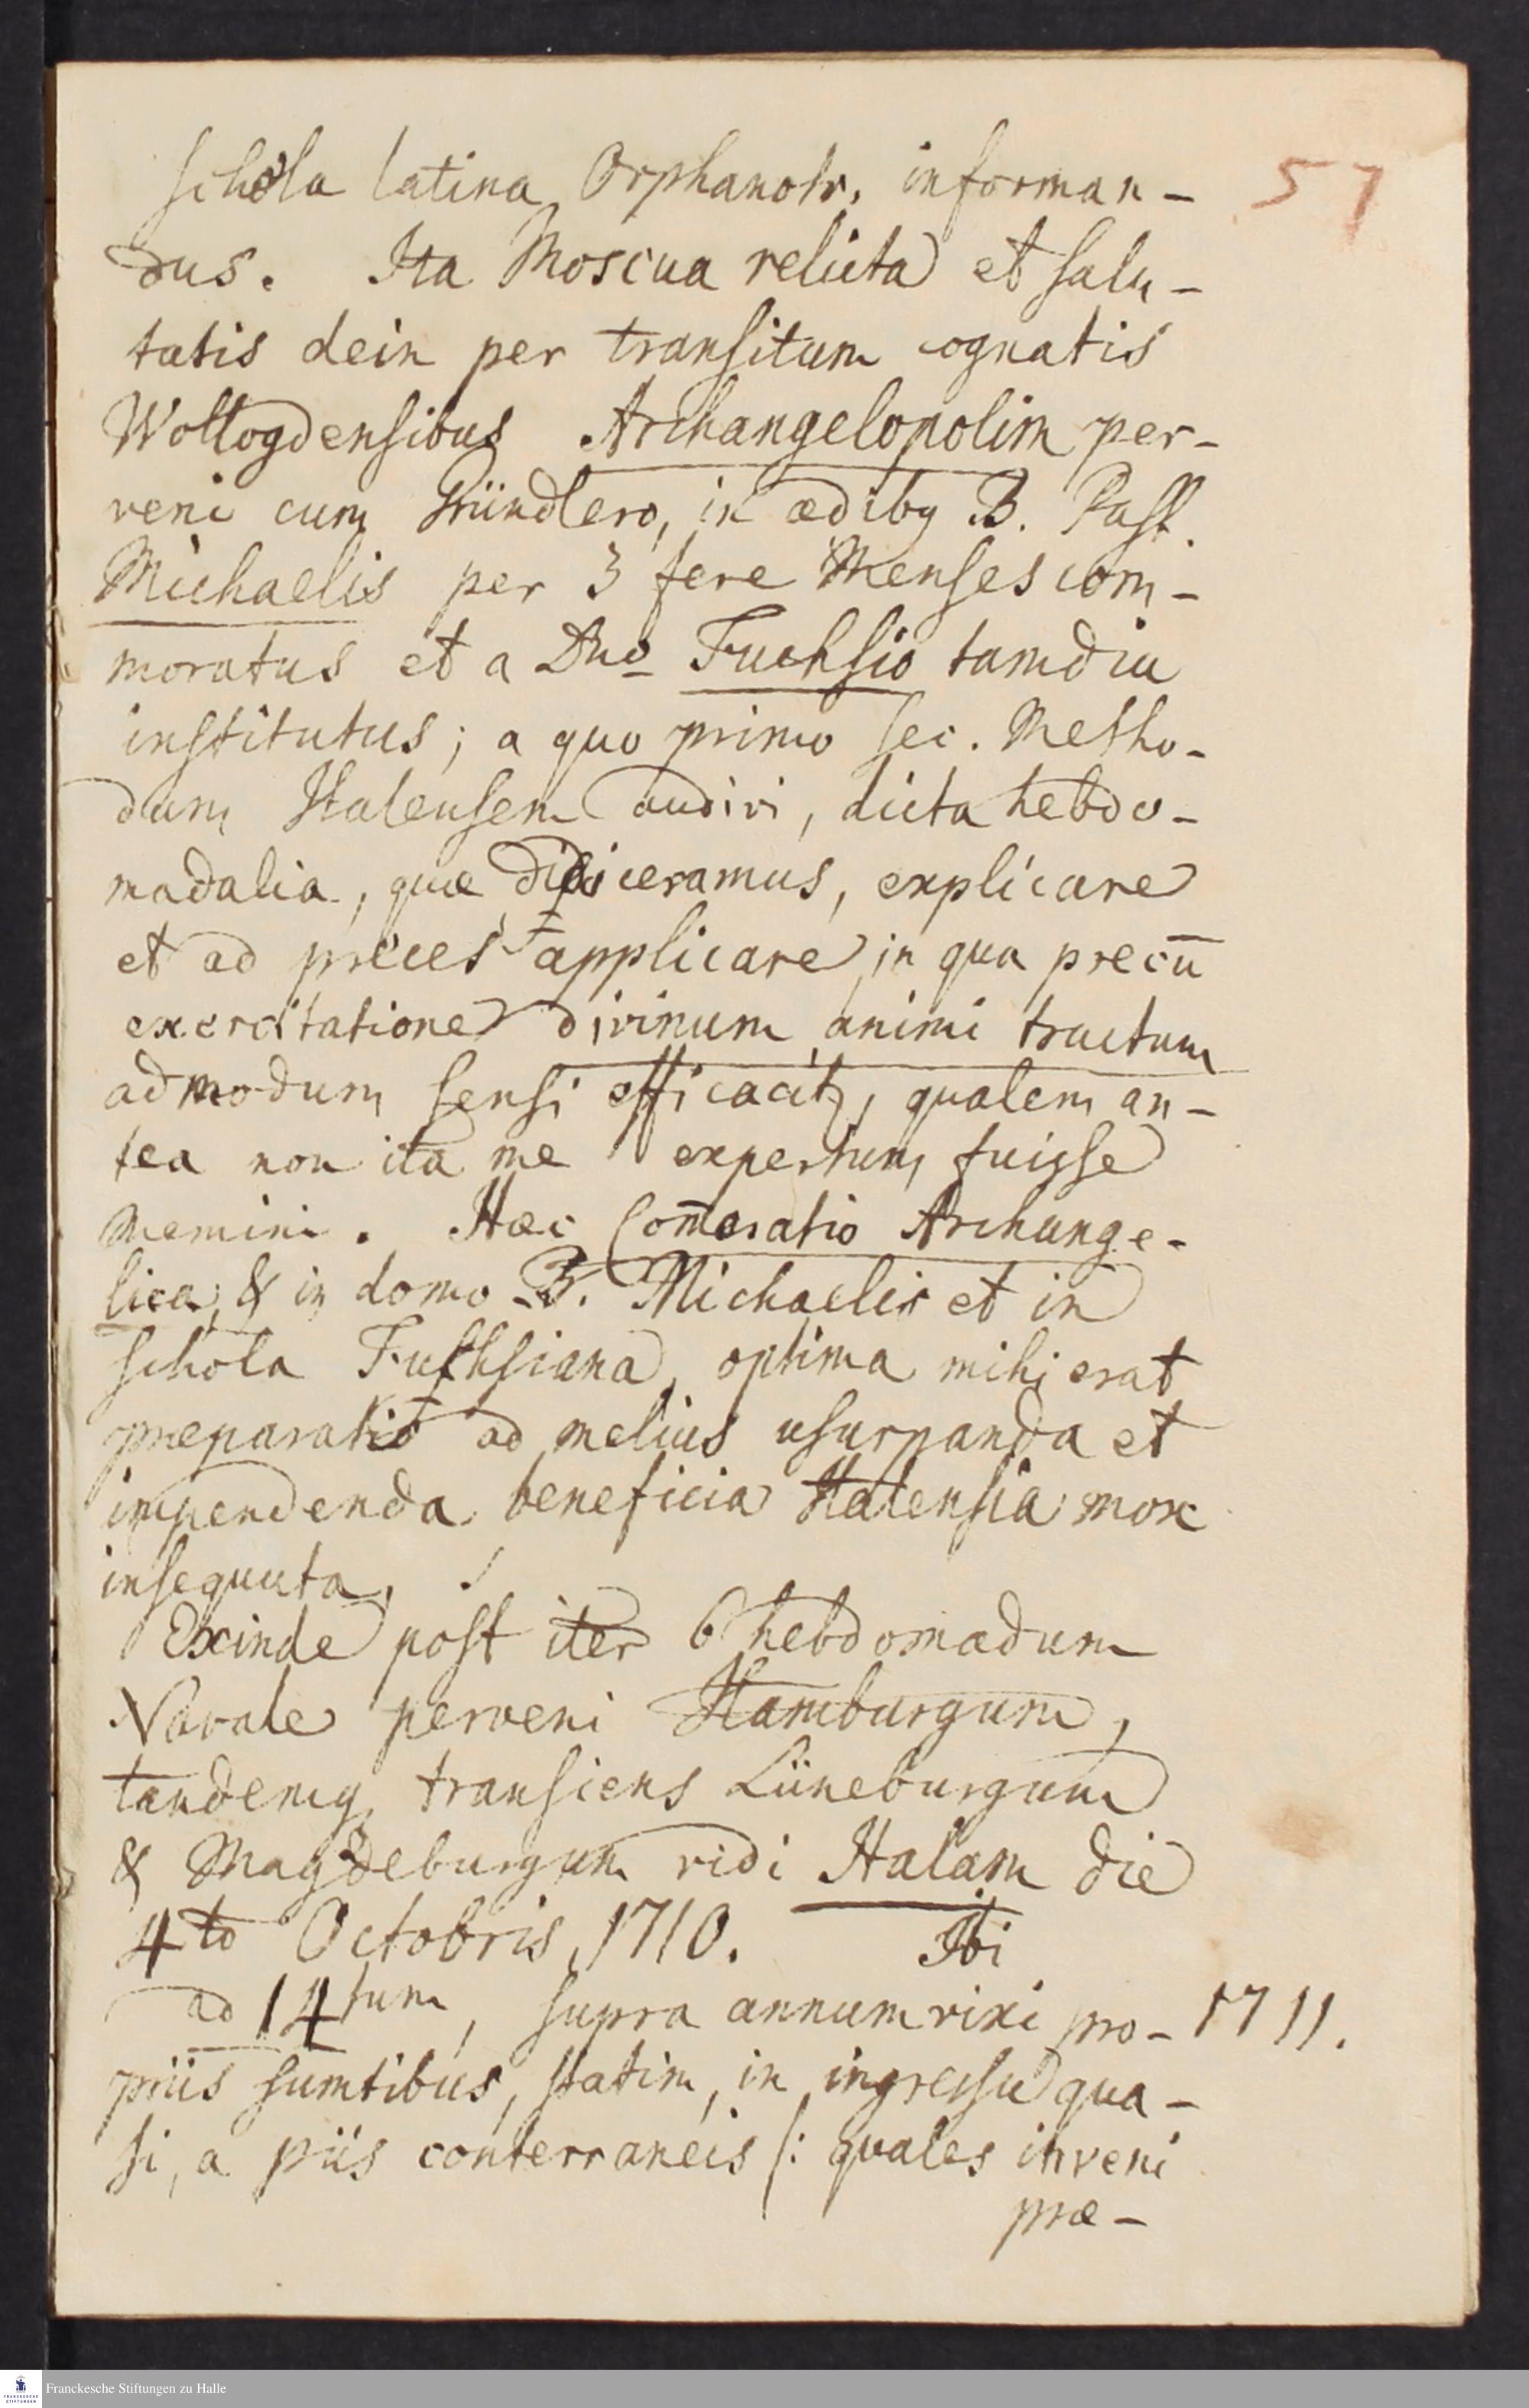 schola latina Orphanotr. informan-
57
dus. Ita Moscua relicta et salu-
tatis dein per transitum cognatis
Wollogdensibus Archangelopolim per-
veni cum Gründlero, in ædibg B. Past.
Michaelis per 3 fere Menses com-
moratus et a Dno Fuchsio tamdiu
institutus; a quo primo sec. Metho-
dum Halensem audivi, dicta hebdo-
madalia, quæ didiceramus, explicare
et ad preces applicare, in qua precū
exercitatione divinum animi tractum
admodum sensi efficacem, qualem an-
tea non ita me expertum fuisse
memini. Hæc Com̄oratio Archange-
lica, & in domo B. Michaelis et in
schola Fuchsiana, optima mihi erat
præparatio ad melius usurpanda et
impendenda beneficia Halensia mox
insequuta.
Exinde post iter 6 hebdomadum
Navale perveni Hamburgum,
tandemq transiens Lüneburgum
& Magdeburgum vidi Halam die
4to Octobris, 1710. Ibi
ad 14tum, supra annum vixi pro-
1711.
priis sumtibus, statim, in ingressu qua-
si, a piis conterraneis /: quales inveni
præ-
Franckesche Stiftungen zu Halle